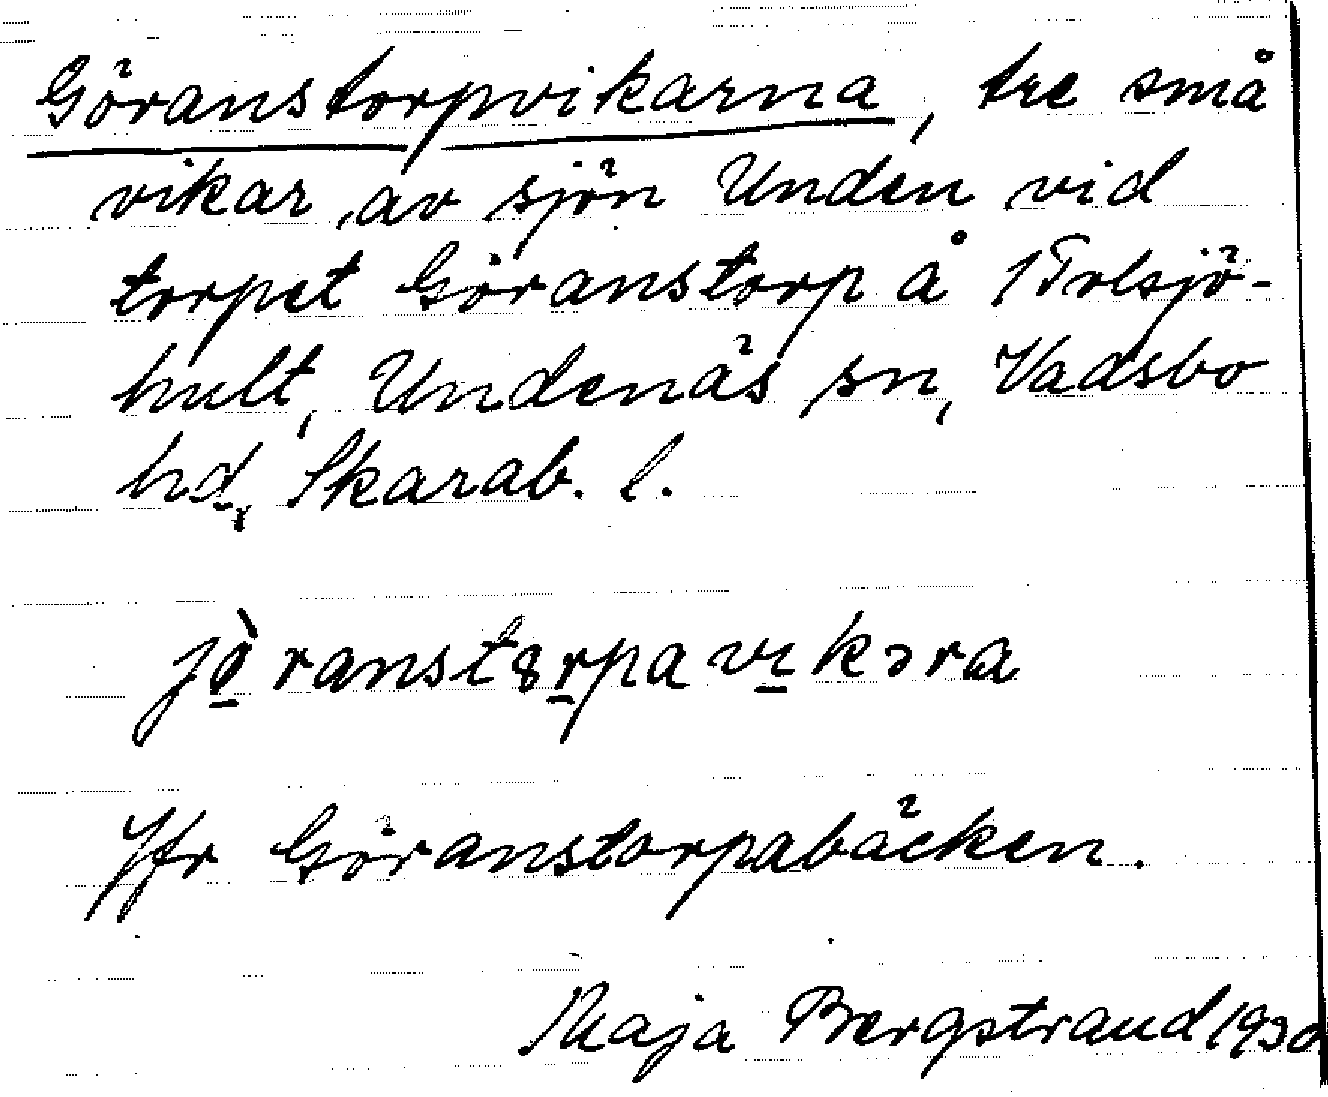 Göranstorpvikarna, tre små
vikar av sjön Unden vid
torpet Göranstorp å 1 Tolsjö-
hult, Undenäs sn, Vadsbo
hd, Skarab. l.
jö̀ranstɷrpavikəra
Jfr Göranstorpabäcken.
Maja Bergstrand 1930